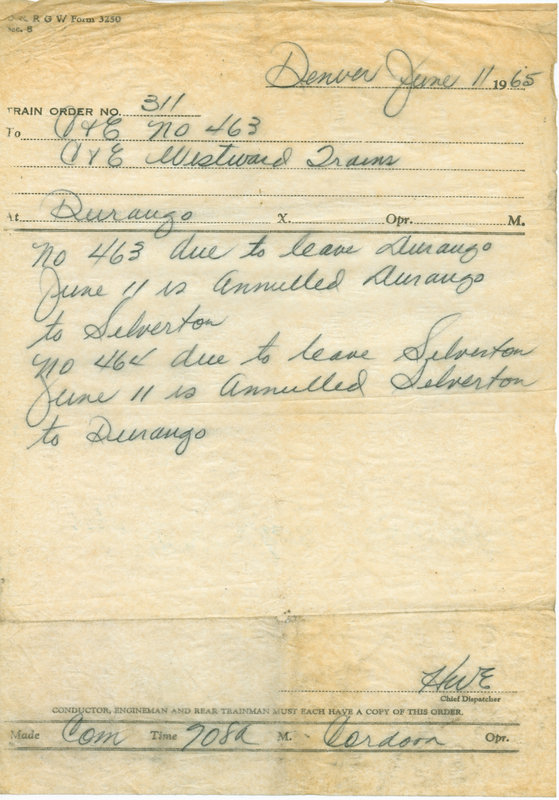 R G W Form 3250
Denver June 11 1965
TRAIN ORDER NO. 311
To C&E No 463
C&E Westward Trains
At Durango X. Opr. M.
No 463 due to leave Durango
June 11 is Annulled Durango
to Silverton
No 464 due to leave Silverton
June 11 is Annulled Silverton
to Durango
HWE
Chief Dispatcher
CONDUCTOR, ENGINEMAN AND REAR TRAINMAN MUST EACH HAVE A COPY OF THIS ORDER.
Made Com Time 708a M. Cordova Opr.